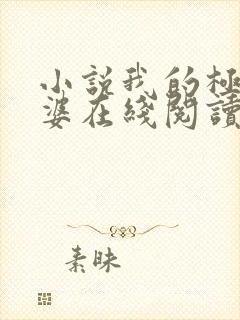 小説我的極
婆在綫閱讀
素昧